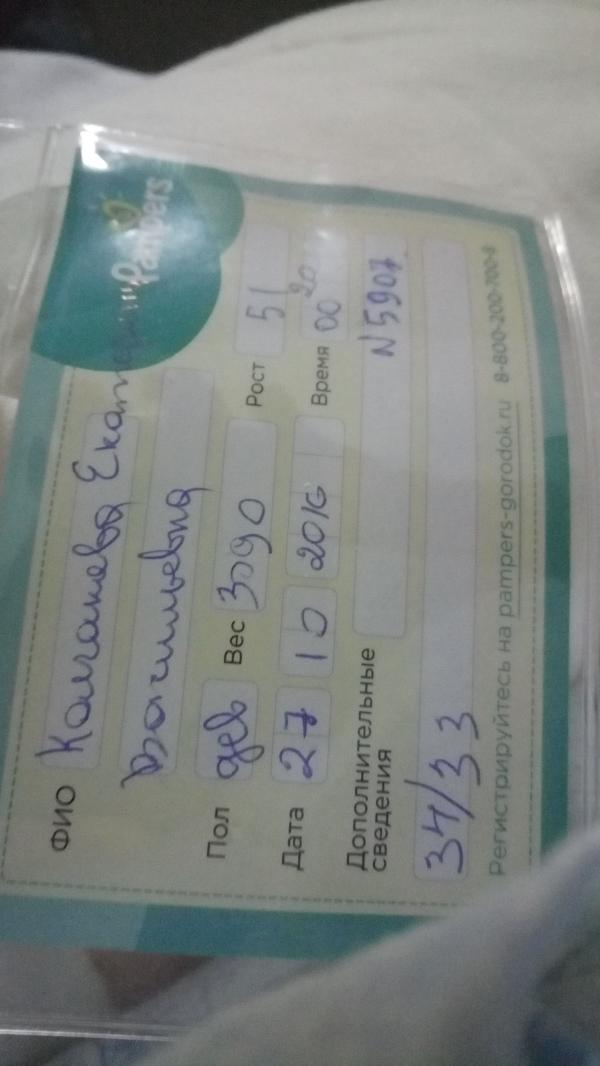 Pampers
ФИО Колганова Екатерина
Васильевна
Пол дев Вес 3090 Рост 51
Дата 27 10 2016 Время 00 20
Дополнительные сведения N5907
34/33
Регистрируйтесь на pampers-gorodok.ru 8-800-200-700-8